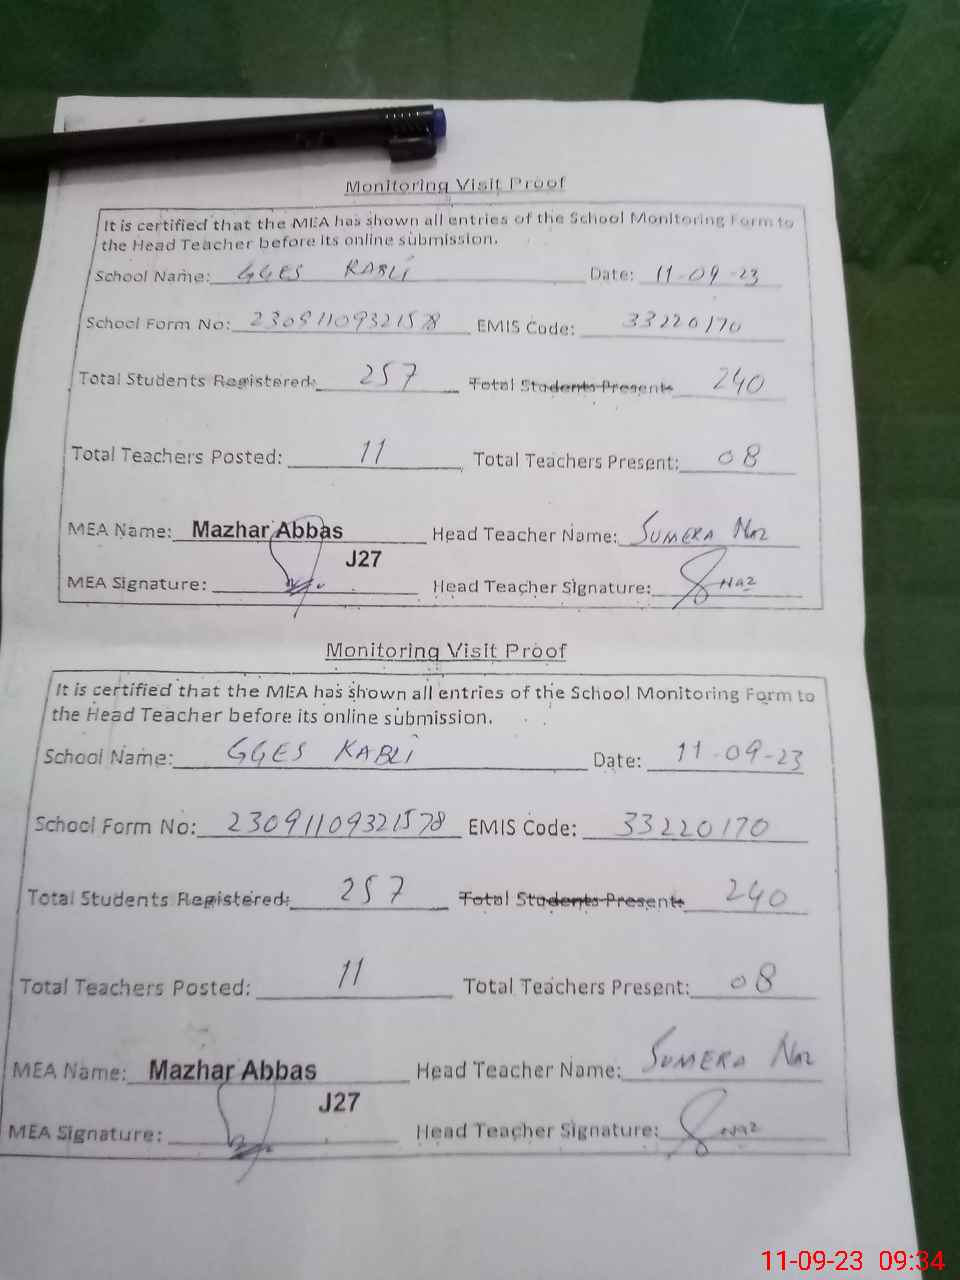 Monitoring Visit Proof
It is certified that the MEA has shown all entries of the School Monitoring Form to
the Head Teacher before its online submission.
School Name: GGES KABLI Date: 11-09-23
School Form No: 23091109321578 EMIS Code: 33220170
Total Students Registered: 257 Total Students Present: 240
Total Teachers Posted: 11 Total Teachers Present: 08
MEA Name: Mazhar Abbas Head Teacher Name: SUMERA Naz
J27
MEA Signature: Head Teacher Signature: Naz
Monitoring Visit Proof
It is certified that the MEA has shown all entries of the School Monitoring Form to
the Head Teacher before its online submission.
School Name: GGES KABLI Date: 11-09-23
School Form No: 23091109321578 EMIS Code: 33220170
Total Students Registered: 257 Total Students Present: 240
Total Teachers Posted: 11 Total Teachers Present: 08
MEA Name: Mazhar Abbas Head Teacher Name: SUMERA Naz
J27
MEA Signature: Head Teacher Signature: Naz
11-09-23 09:34